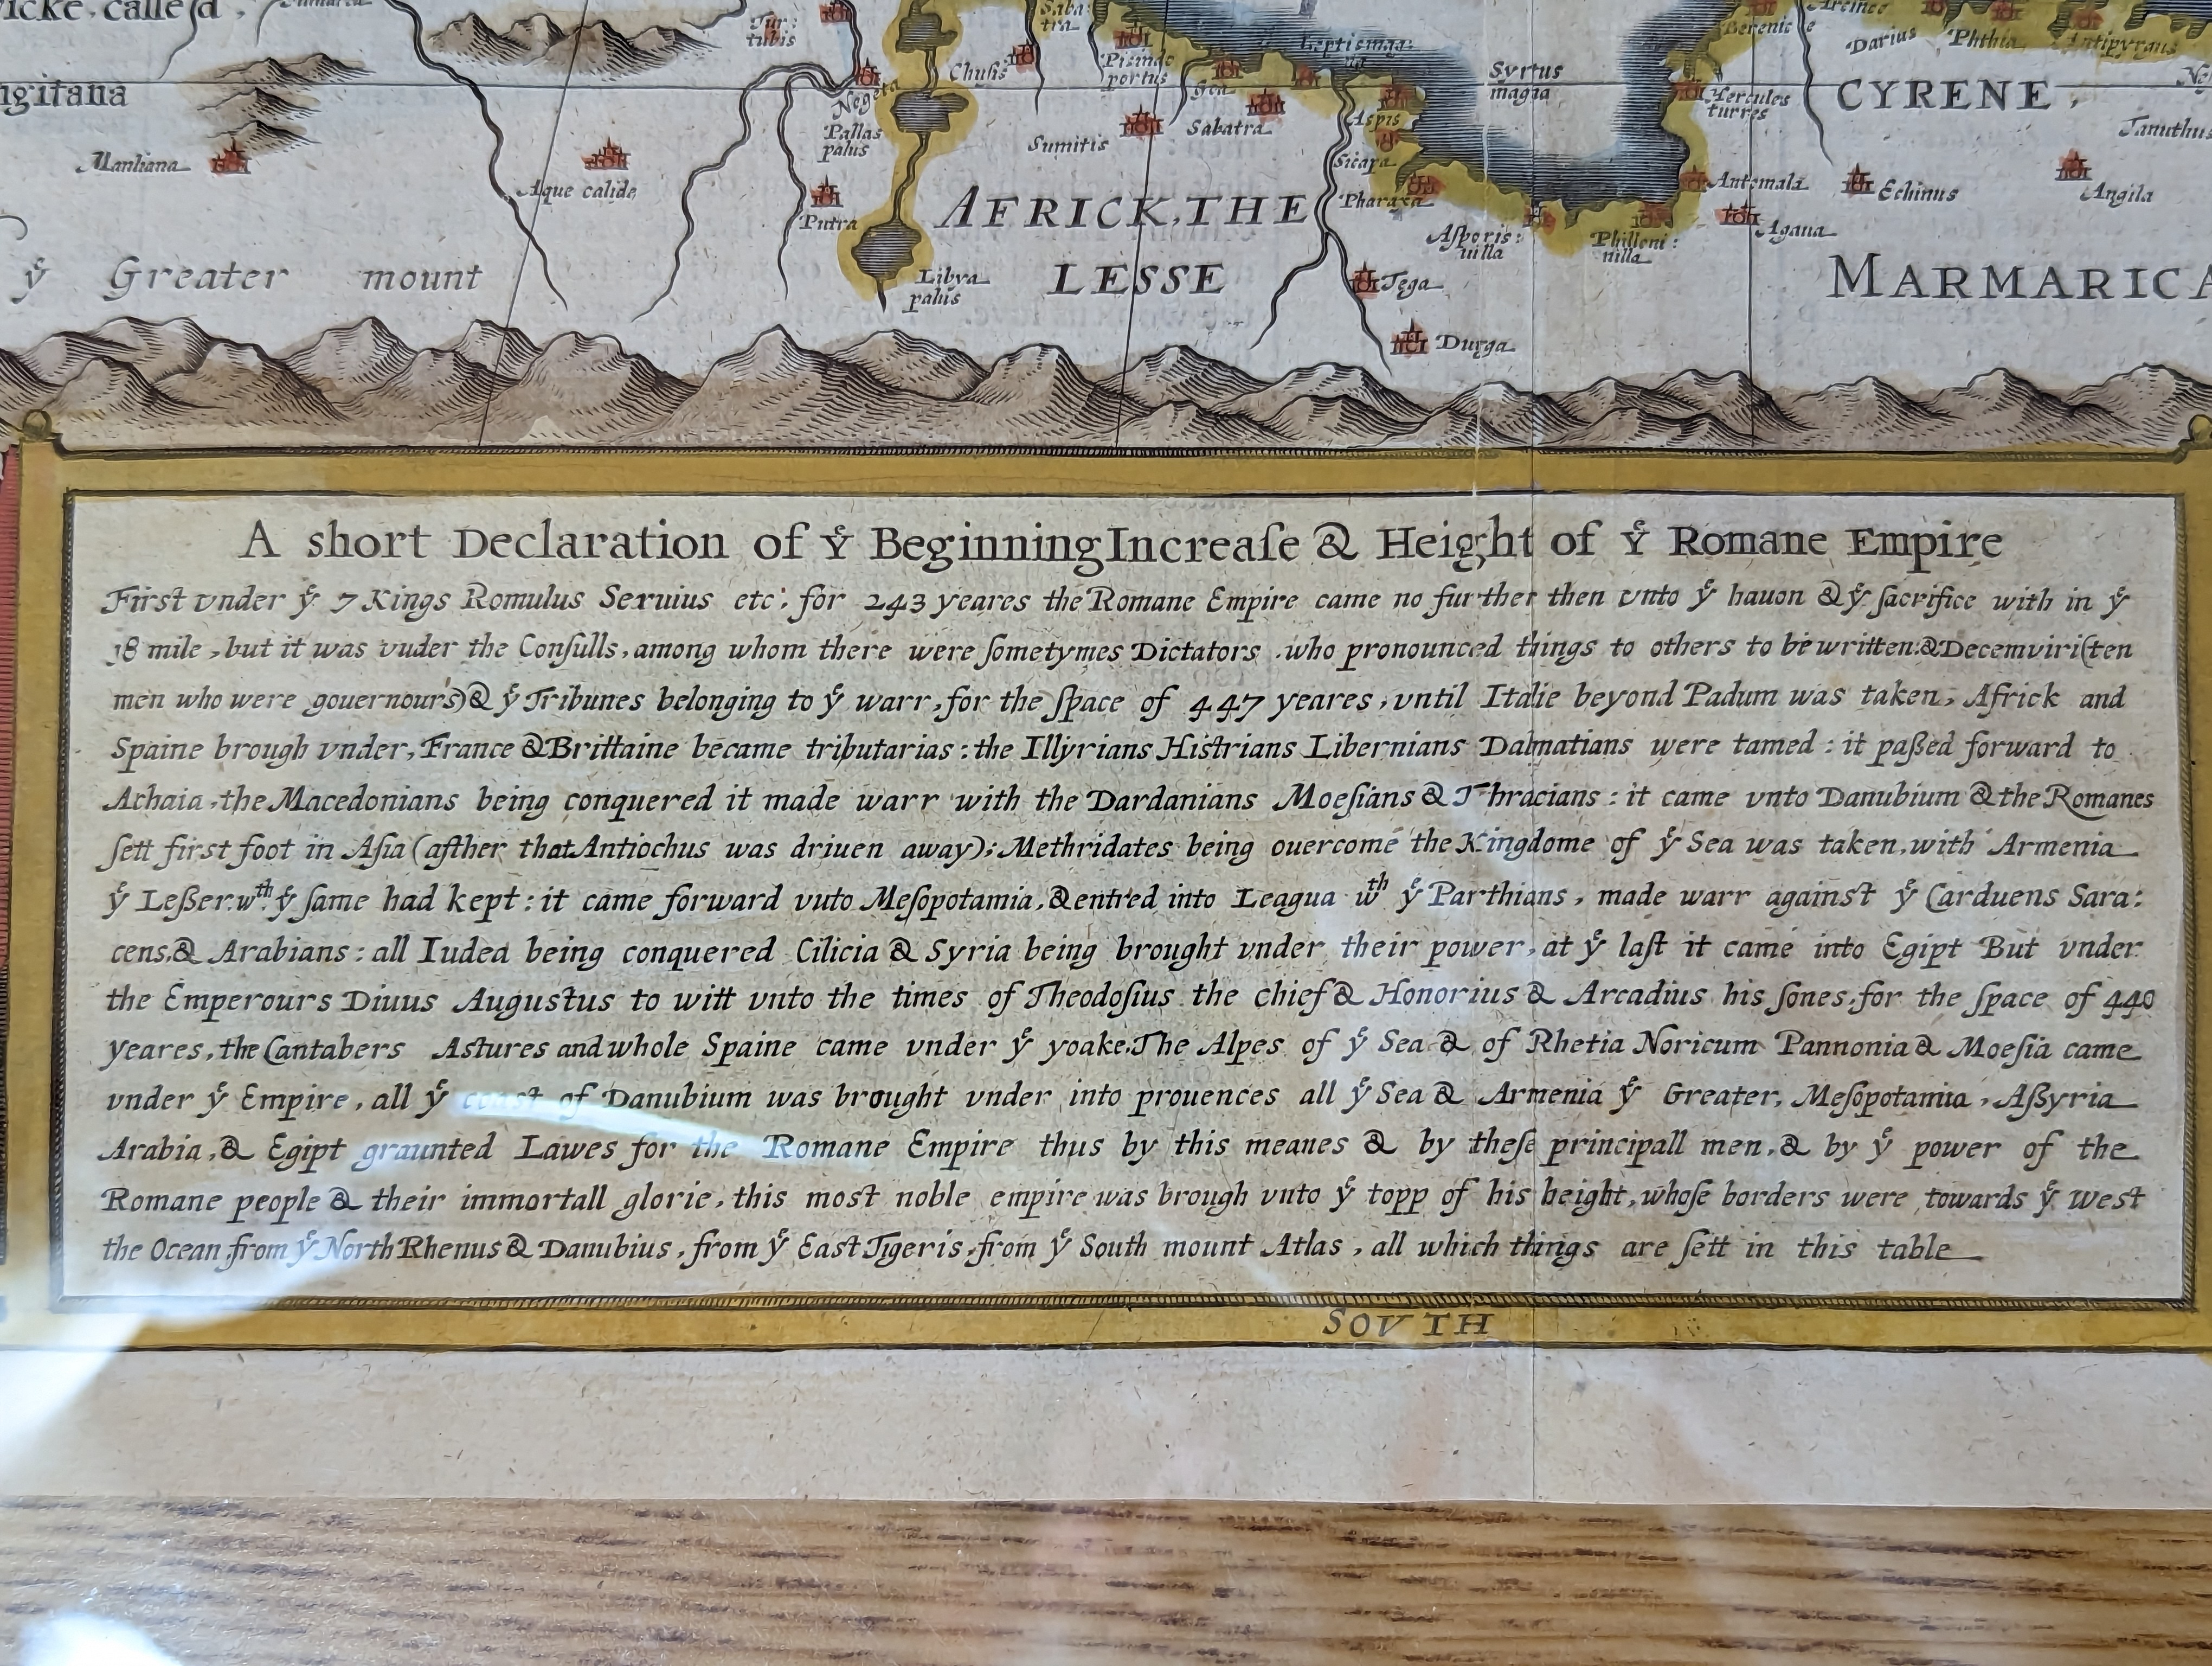 icke, calle d,
Tur:
tubis
Saba:
tra
Leptis mag:
Berenice
Darius
Phthia
Antipyrgus
ngitana
Negeta
Chusis
Pisinde
portus
Syrtus
magna
Hercules
turres
CYRENE
Tanuthus
Manliana
Aque calide
Pallas
palus
Sumitis
Sabatra
Aspis
Sicapa
Putra
AFRICK, THE
LESSE
Pharaxa
Asporis:
uilla
Philleni:
uilla
Automala
Agaua
Echinus
Angila
ẙ Greater mount
Libya
palus
Tega
Durga
MARMARICA
A short Declaration of ẙ Beginning Increaſe & Height of ẙ Romane Empire
First vnder ẙ 7 Kings Romulus Seruius etc: for 243 yeares the Romane Empire came no further then vnto ẙ hauon & ẙ ſacrifice with in ẙ
18 mile, but it was vuder the Conſulls, among whom there were ſometymes Dictators .who pronounced things to others to be written:& Decemviri(ten
men who were gouernour's)& ẙ Tribunes belonging to ẙ warr, for the ſpace of 447 yeares, vntil Italie beyond Padum was taken, Africk and
Spaine brough vnder, France & Brittaine became tributarias: the Illyrians Histrians Libernians Dalmatians were tamed: it paßed forward to
Achaia, the Macedonians being conquered it made warr with the Dardanians Moeſians & Thracians: it came vnto Danubium & the Romanes
ſett first foot in Aſia (afther that Antiochus was driuen away); Methridates being ouercome the Kingdome of ẙ Sea was taken, with Armenia
ẙ Leßer. wth ẙ ſame had kept: it came forward vuto Meſopotamia, & entred into Leagua wth ẙ Parthians, made warr against ẙ Carduens Sara:
cens,& Arabians: all Iudea being conquered Cilicia & Syria being brought vnder their power, at ẙ laſt it came into Egipt But vnder
the Emperours Diuus Augustus to witt vnto the times of Theodoſius the chief & Honorius & Arcadius his ſones, for the ſpace of 440
yeares, the Cantabers Astures and whole Spaine came vnder ẙ yoake. The Alpes of ẙ Sea & of Rhetia Noricum Pannonia & Moeſia came
vnder ẙ Empire, all ẙ coast of Danubium was brought vnder into prouences all ẙ Sea & Armenia ẙ Greater, Meſopotamia, Aßyria
Arabia, & Egipt graunted Lawes for the Romane Empire thus by this meanes & by theſe principall men, & by ẙ power of the
Romane people & their immortall glorie, this most noble empire was brough vnto ẙ topp of his height, whoſe borders were towards ẙ West
the Ocean, from ẙ North Rhenus & Danubius, from ẙ East Tigeris, from ẙ South mount Atlas, all which things are ſett in this table
SOVTH